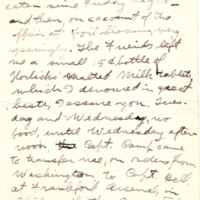 eaten since Friday night—
and then, on account of the
affair at Fort Slocum, very
sparingly. The Friends left
me a small 15¢ bottle of
Horlick's Malted Milk Tablets,
which I devoured in great
haste, I assure you. Tues-
day and Wednesday, no
food, until Wednesday after-
noon Capt. Camp came
to transfer me, on orders from
Washington, to Capt. Bell
at Frankford Arsenal, in